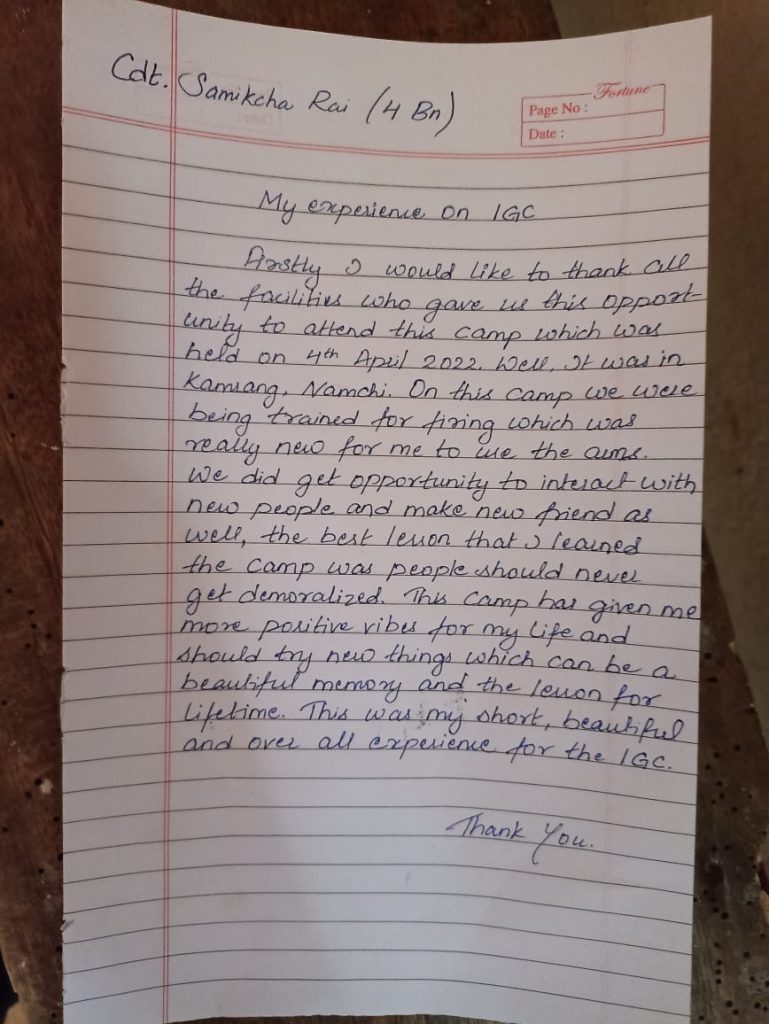 Cdt. Samikcha Rai (4 Bn)
Fortune
Page No :
Date :
My experience on IGC
Firstly I would like to thank all
the facilities who gave us this opport-
unity to attend this camp which was
held on 4th April 2022. Well, It was in
Kamrang, Namchi. On this camp we were
being trained for firing which was
really new for me to use the arms.
We did get opportunity to interact with
new people and make new friend as
well, the best lesson that I learned
the camp was people should never
get demoralized. This camp has given me
more positive vibes for my life and
should try new things which can be a
beautiful memory and the lesson for
lifetime. This was my short, beautiful
and over all experience for the IGC.
Thank You.